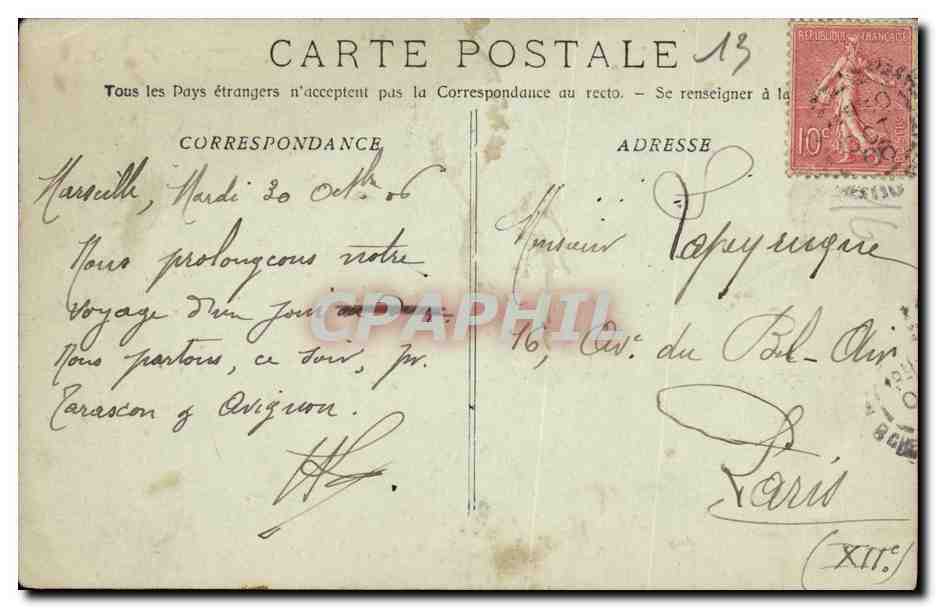 CARTE POSTALE
13
Tous les Pays étrangers n'acceptent pas la Correspondance au recto. - Se renseigner à la
REPUBLIQUE FRANÇAISE
10c
CORRESPONDANCE
Marseille, Mardi 30 Octbre 06
Nous prolongeons notre
voyage d'un jour
Nous partons, ce soir, pr.
Tarascon & Avignon.
ADRESSE
Monsieur Lapeyrugue
16, Ave. du Bel-Air
Paris
(XIIe.)
CPAPHIL